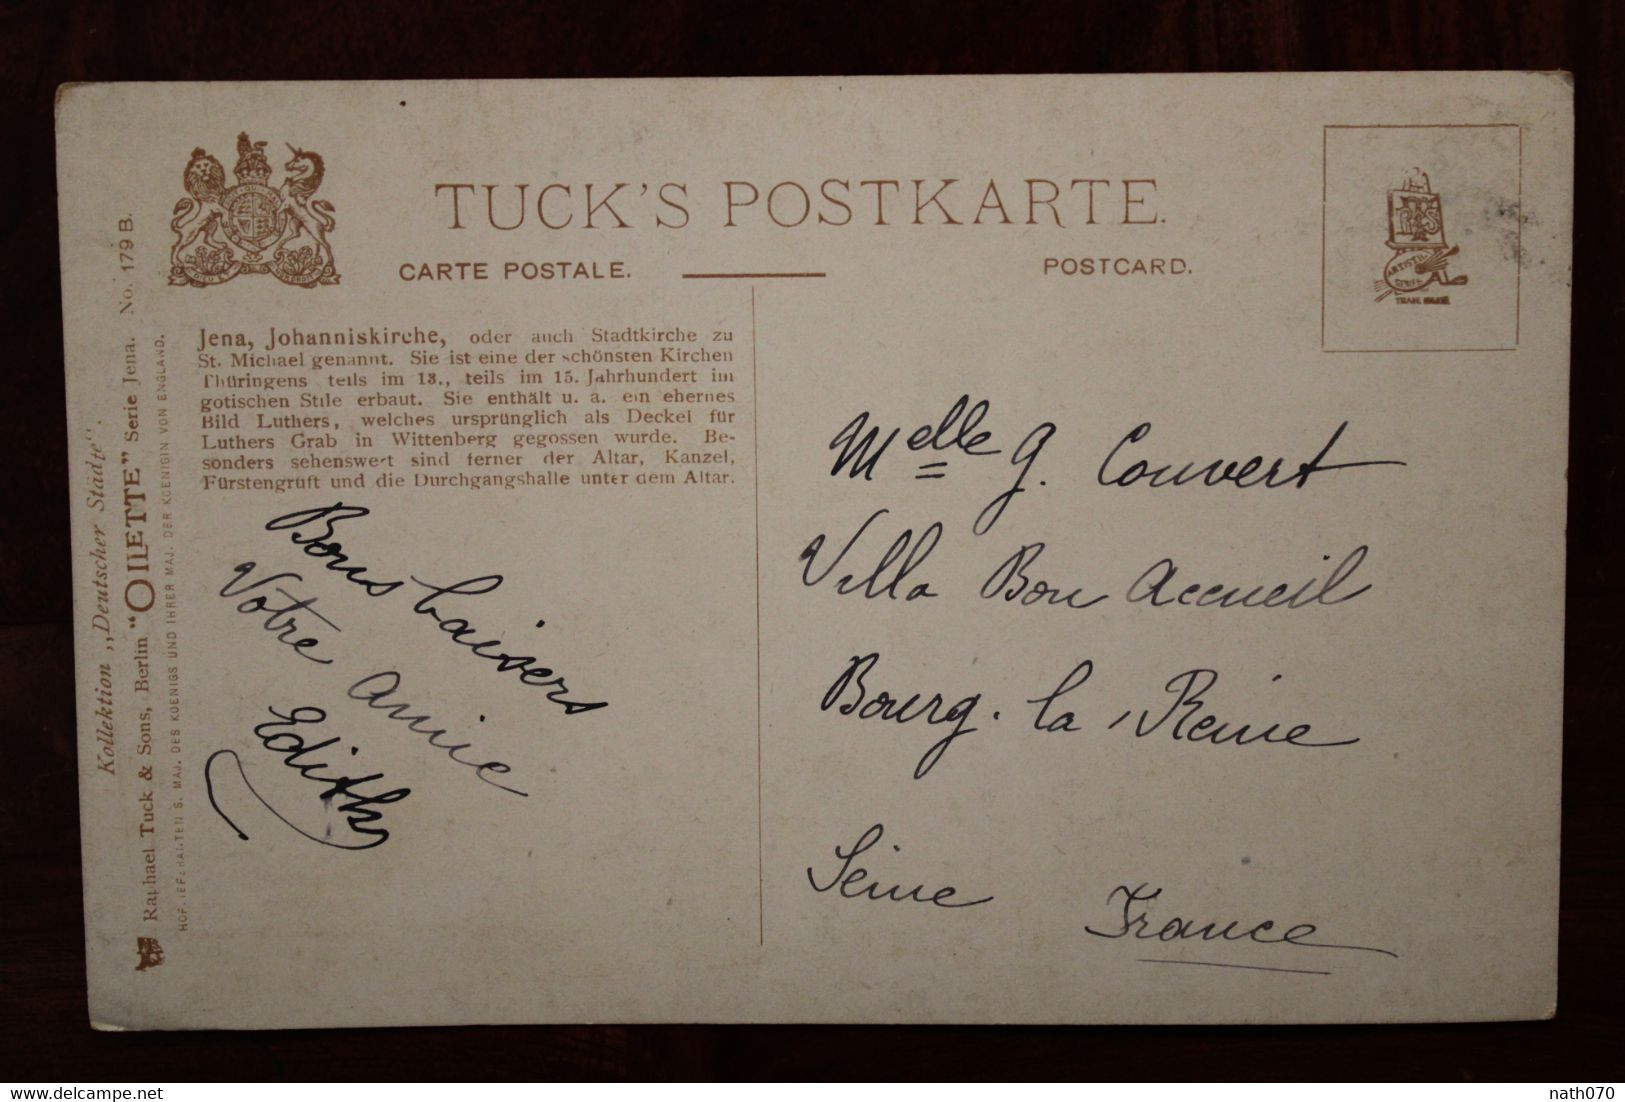 TUCK'S POSTKARTE.
CARTE POSTALE.
POSTCARD.
ARTISTIC
SERIE
TRADE MARK
Jena, Johanniskirche, oder auch Stadtkirche zu
St. Michael genannt. Sie ist eine der schönsten Kirchen
Thüringens teils im 13., teils im 15. Jahrhundert im
gotischen Stile erbaut. Sie enthält u. a. ein ehernes
Bild Luthers, welches ursprünglich als Deckel für
Luthers Grab in Wittenberg gegossen wurde. Be-
sonders sehenswert sind ferner der Altar, Kanzel,
Fürstengruft und die Durchgangshalle unter dem Altar.
Bons baisers
Votre amie
Edith
Melle G. Couvert
Villa Bon Accueil
Bourg-la-Reine
Seine France
Kollektion „Deutscher Städte“.
Raphael Tuck & Sons, Berlin "OILETTE" Serie Jena. No. 179 B.
HOFLIEFERANTEN S. MAJ. DES KOENIGS UND IHRER MAJ. DER KOENIGIN VON ENGLAND.
nath070